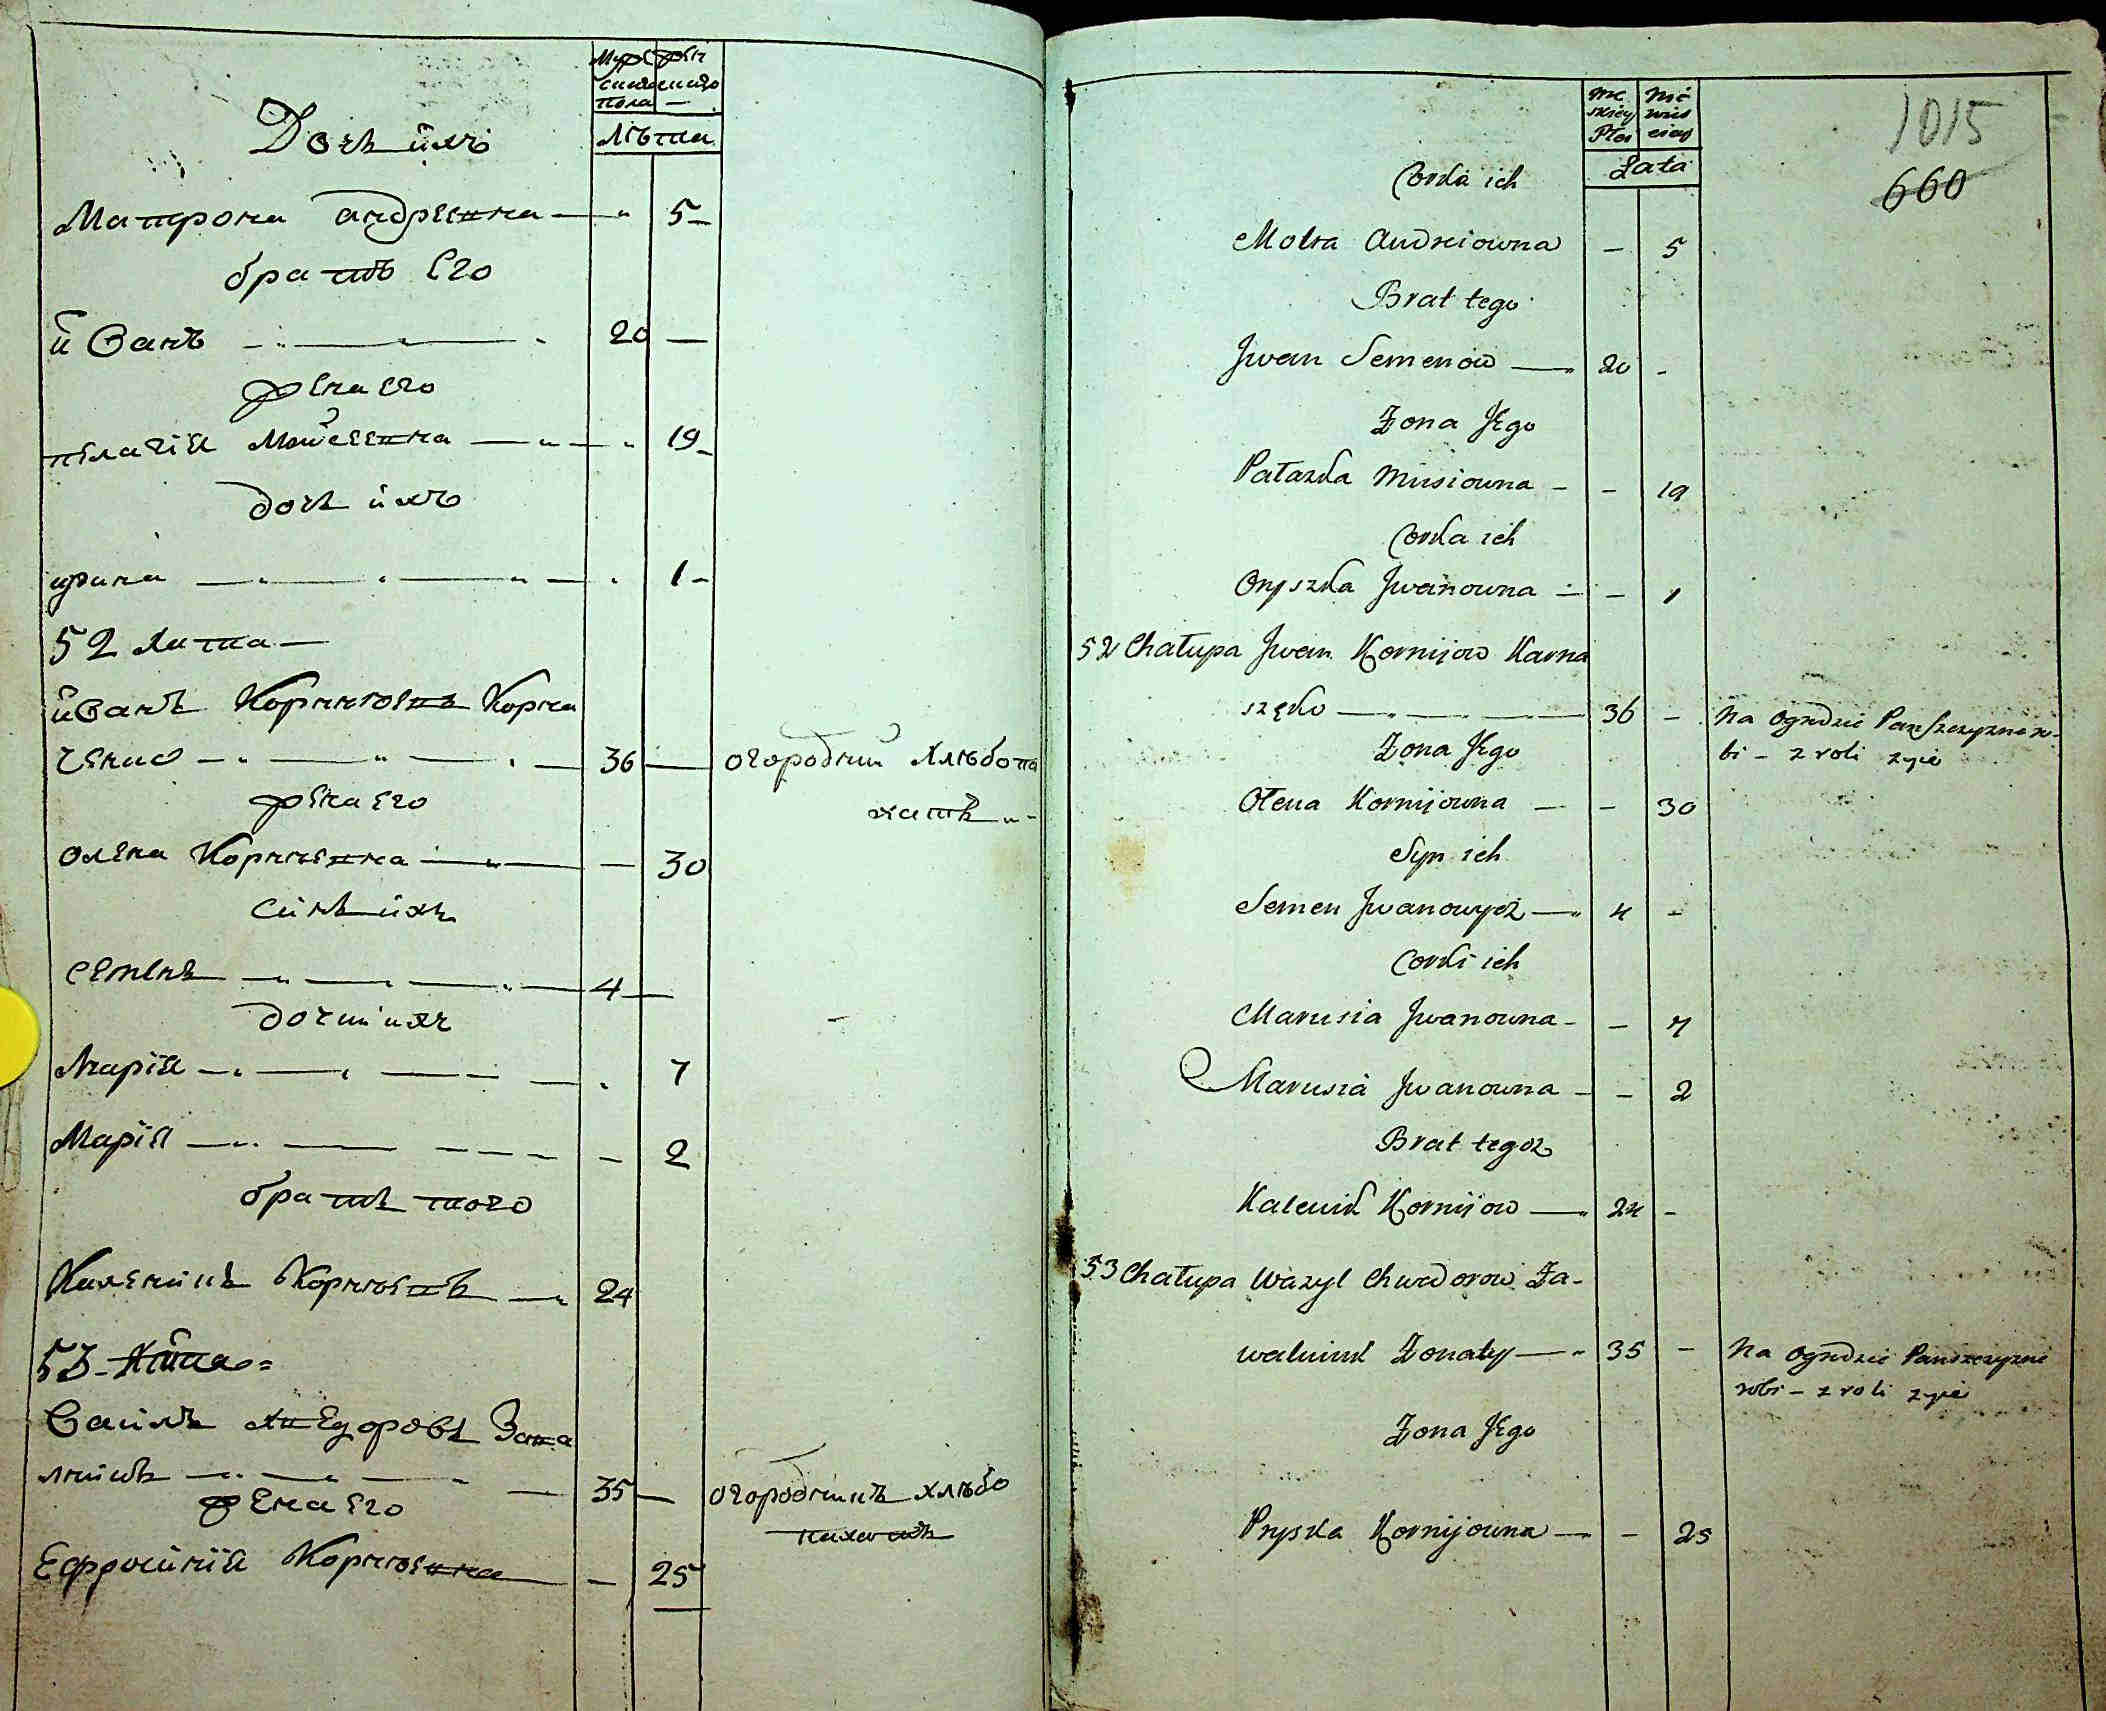 Мужеска
Женскаго
пола
Лѣта
Дочь ихъ
Матрона Андреевна — 5
братъ Его
Иванъ — 20 —
жена его
Пелагія Моисеевна — 19
дочь ихъ
Ирина — 1
52 Хата
Иванъ Корниіовъ Корна
ченко — 36 — огородник Хлѣбопа
жена его
хатъ
Олена Корниевна — 30
Синъ ихъ
Семенъ — 4 —
дочки ихъ
Марія — 7
Марія — 2
братъ того
Каленикъ Корниовъ — 24
53 Хата
Василь Хведоровъ Зава
лнюкъ — 35 — огородникъ хлѣбо
жена его
пахатъ
Ефросинія Корниовна — 25
1015
660
Me
skiey
Płci
Nie
wies
ciey
Lata
Corka ich
Motra Andreiowna — 5
Brat tego
Jwan Semenow — 20 -
Zona Jego
Pałazka Musiowna - - 19
Corka ich
Oryszka Jwanowna — - 1
52 Chałupa Jwan Kornijow Karna
szęko — 36 - Na Ogrodzie Panszczyzne ro-
Zona Jego
bi - z roli zyie
Ołena Kornijowna — - 30
Syn ich
Semen Jwanowycz — 4 -
Corki ich
Marusia Jwanowna - - 7
Marusia Jwanowna - - 2
Brat tegoz
Kalenik Kornijow — 24 -
53 Chałupa Wazyl Chwadorow Za-
waluiuk Zonaty — 35 - Na Ogrodzie Panszczyzne
robi - z roli zyie
Zona Jego
Pryska Kornijowna — - 25